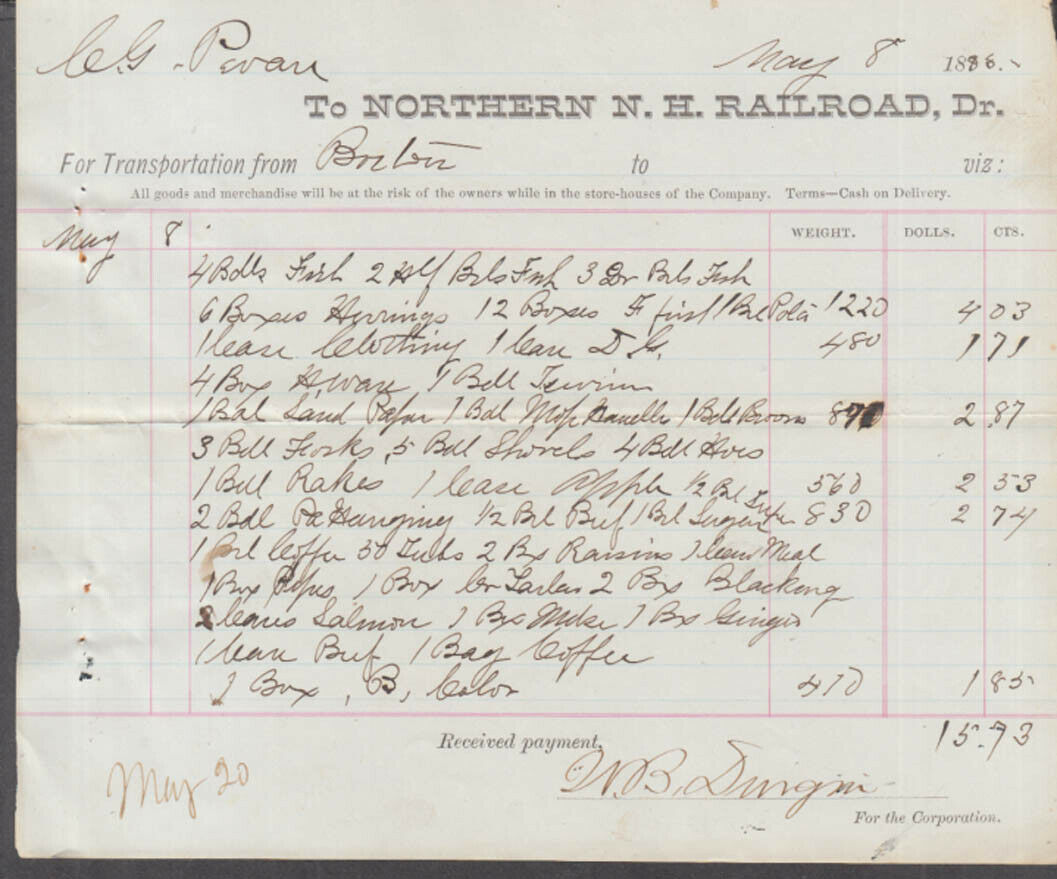 C. G. Pevare May 8 1886.
To NORTHERN N. H. RAILROAD, Dr.
For Transportation from Boston to viz:
All goods and merchandise will be at the risk of the owners while in the store-houses of the Company. Terms—Cash on Delivery.
May 8 WEIGHT. DOLLS. CTS.
4 Bdls Fish 2 Hlf Brls Fish 3 Qr Brls Fish
6 Boxes Herrings 12 Boxes 1220 4 03
1 Case Clothing 1 Case D G. 480 1 71
4 Box H. ware, 1 Bdl
1 Bdl Sand Paper 1 Bdl Mop Handles 1 Bdl Brooms 2 87
3 Bdl Forks, 5 Bdl Shovels 4 Bdl Hoes
1 Bdl Rakes 1 Case Apple 1/2 Brl 560 2 53
2 Bdl Pa Hanging 1/2 Brl Beef 1 Brl Sugar 830 2 74
1 Brl Coffee 50 Tubs 2 Bx Raisins 1 Meal
1 Box Pipes 1 Box Cr Tarter 2 Bx Blacking
2 Cases Salmon 1 Bx 1 Bx Ginger
1 Case Beef 1 Bag Coffee
1 Box, B, Color 410 1 85
15.73
Received payment,
May 20 W. B. Durgin
For the Corporation.